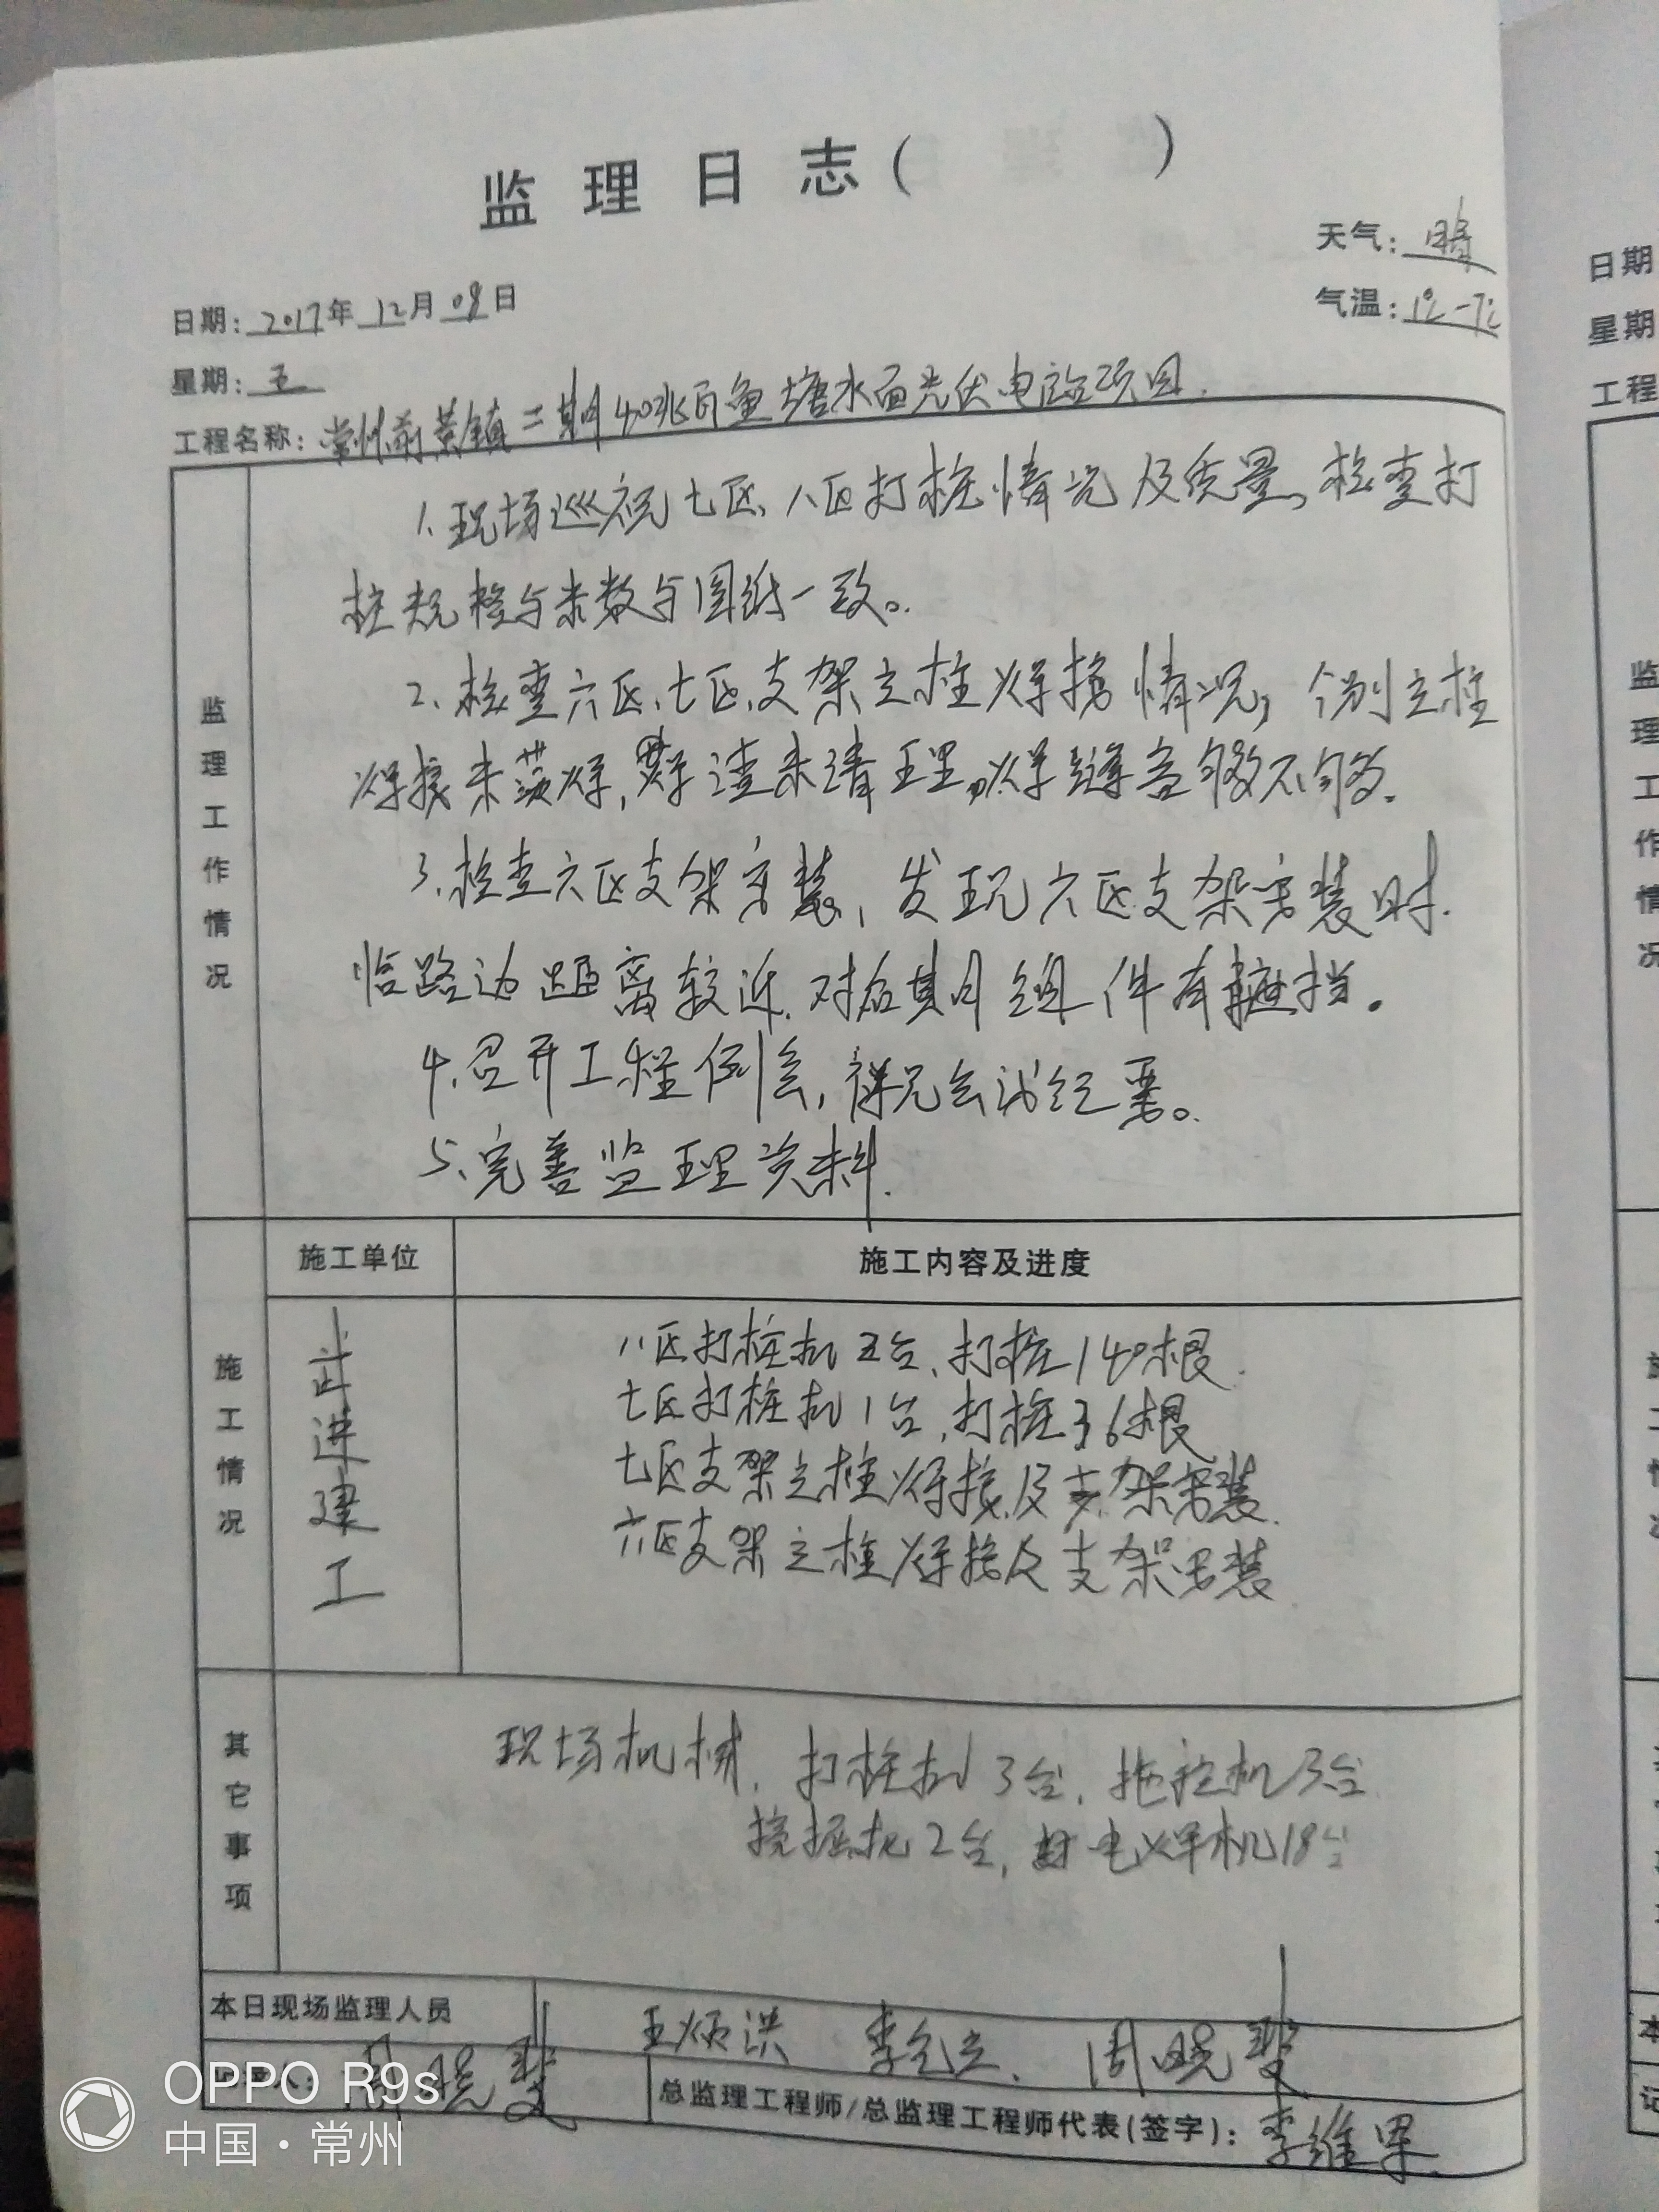 监理日志( )
天气:晴
日期:2017年12月08日
气温:1℃-7℃
星期:五
工程名称:常州前黄镇二期40兆瓦鱼塘水面光伏电站项目.
监理工作情况
1.现场巡视七区、八区打桩情况及质量,检查打
桩规格与米数与图纸一致。
2.检查六区、七区、支架立柱焊接情况,个别立柱
焊接未满焊,焊渣未清理,焊缝
3.检查六区支架安装,发现六区支架安装时.
临路边距离较近.对后期组件有遮挡。
4.召开工程例会,详见会议纪要。
5.完善监理资料.
施工单位 施工内容及进度
施工情况
武进建工
八区打桩机五台、打桩140根.
七区打桩机1台,打桩36根
七区支架立柱焊接及支架安装.
六区支架立柱焊接及支架安装
其它事项
现场机械.打桩机3台.拖拉机3台
挖掘机2台,电焊机18台
本日现场监理人员 王炳洪 周晓斐
总监理工程师/总监理工程师代表(签字):李维军
日期
星期
工程
监理工作情况
OPPO R9s
中国·常州